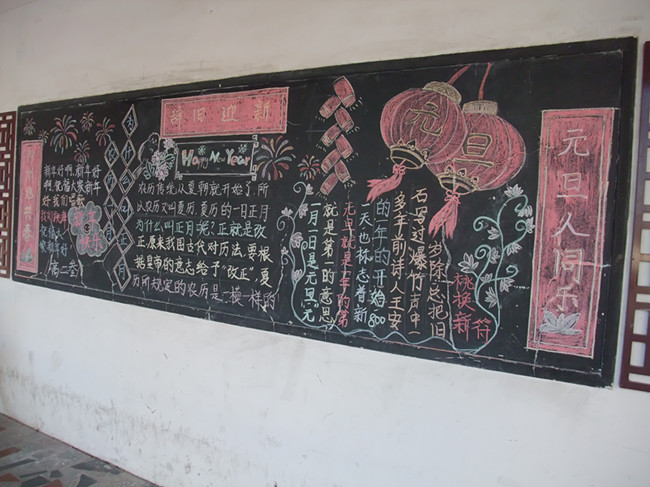 新年好啊,新年好
啊,祝福大家新年
好
我们唱歌
我们跳舞
祝福大
家新年好
高二
羊年
快乐
为
正月
辞旧迎新
Happy New Year
农历传统从夏朝就开始了,所
以农历又叫夏历。夏历的一日正月
为什么叫正月呢?正就是改
正。原来我国古代对历法,要根
据皇帝的意志给予“改正”,夏
历所规定的农历是一模一样的
元旦就是一年的第
就是第一的意思
一月一日是元旦。元
元
旦
石写过爆竹声中一
岁除总把旧
桃换新符
多年前诗人王安
的一年的开始 800
天也标志着新
元旦人同乐